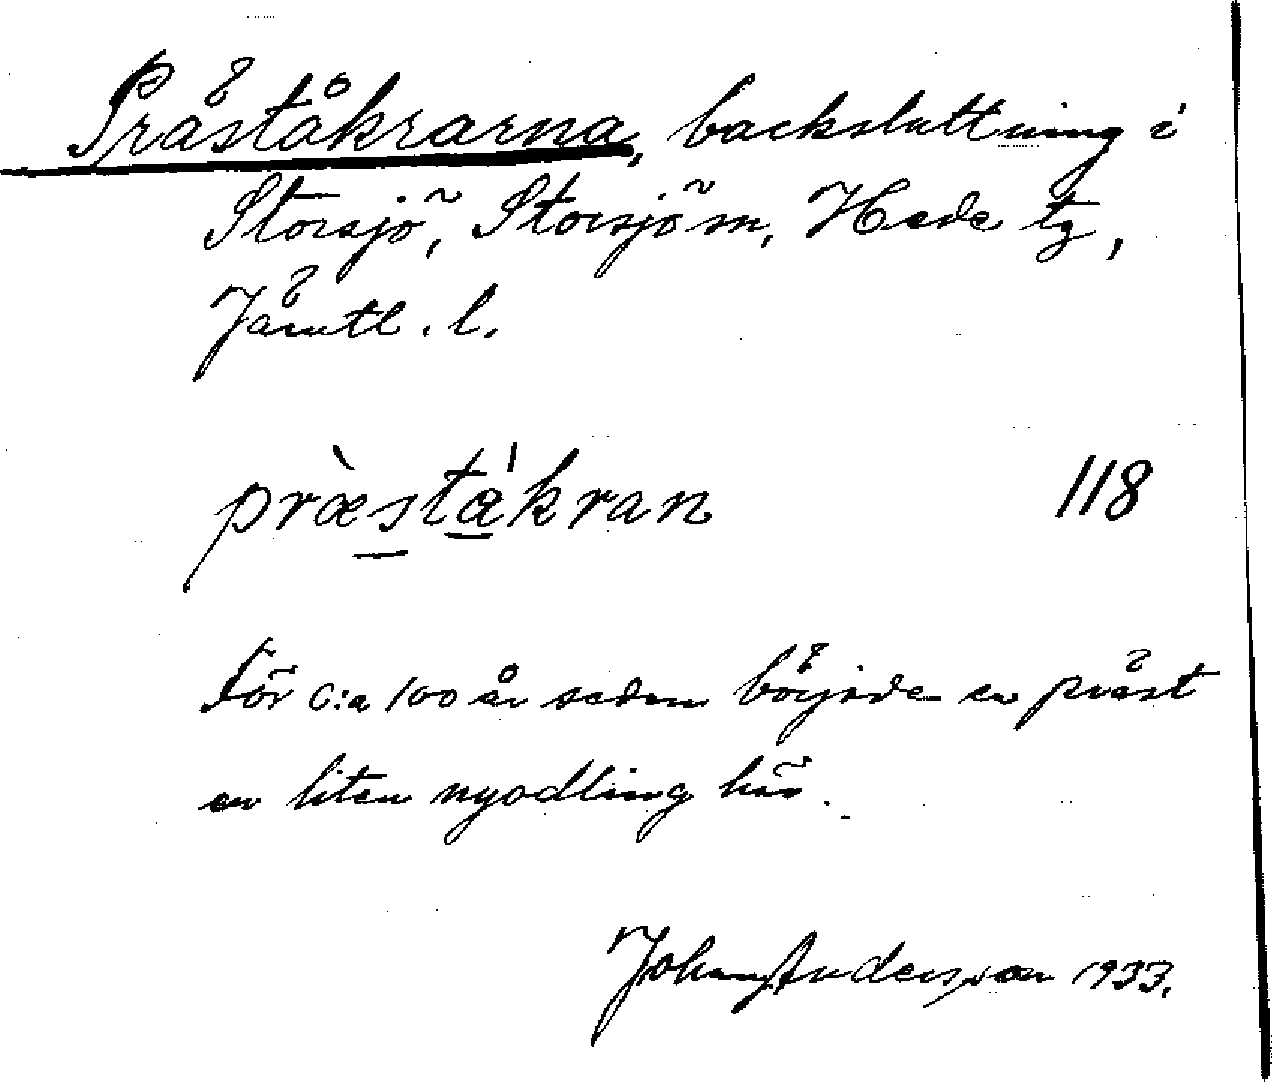 Präståkrarna, backsluttning i
Storsjö, Storsjö sn, Hede tg,
Jämtl. l.
præstækran 118
För c:a 100 år sedan böjrde en präst
en liten nyodling här.
Johnny Andersson 1933.